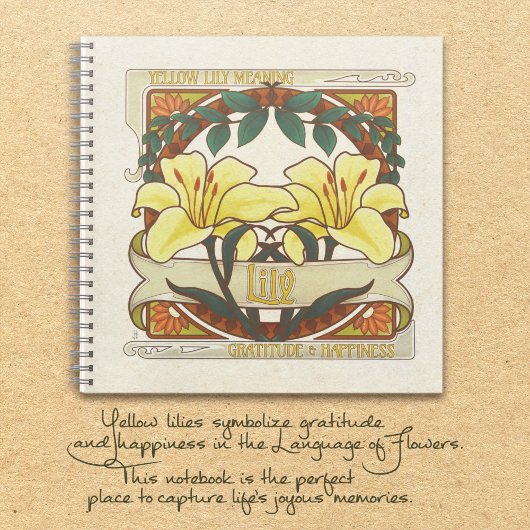 YELLOW LILY MEANING
Lily
GRATITUDE & HAPPINESS
Yellow lilies symbolize gratitude
and happiness in the Language of Flowers.
This notebook is the perfect
place to capture life's joyous memories.